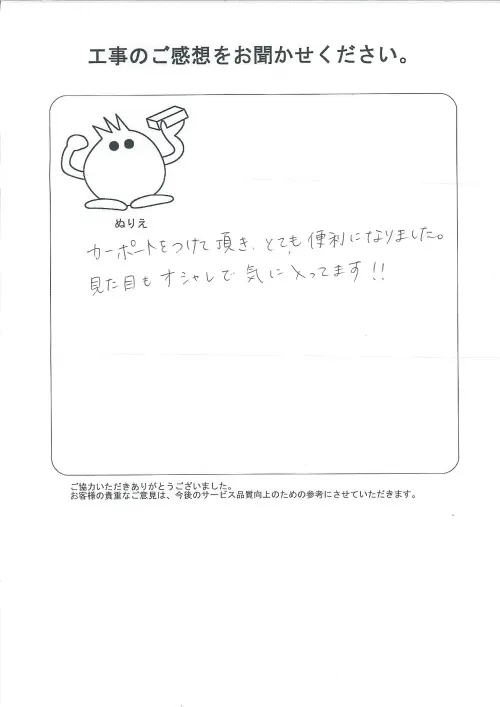 工事のご感想をお聞かせください。
ぬりえ
カーポートをつけて頂き、とても便利になりました。
見た目もオシャレで気に入ってます!!
ご協力いただきありがとうございました。
お客様の貴重なご意見は、今後のサービス品質向上のための参考にさせていただきます。